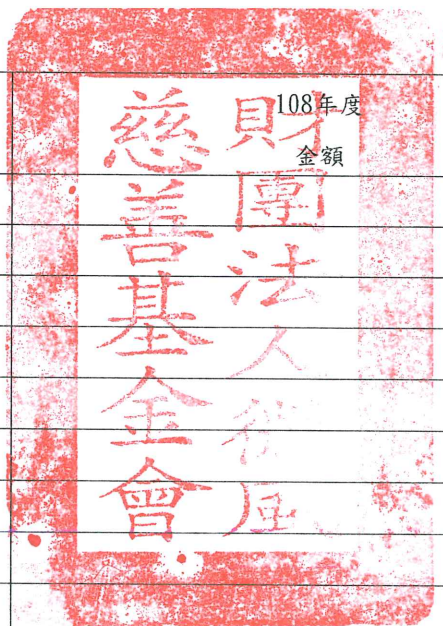 108年度
金額
財團法人
慈善基金會